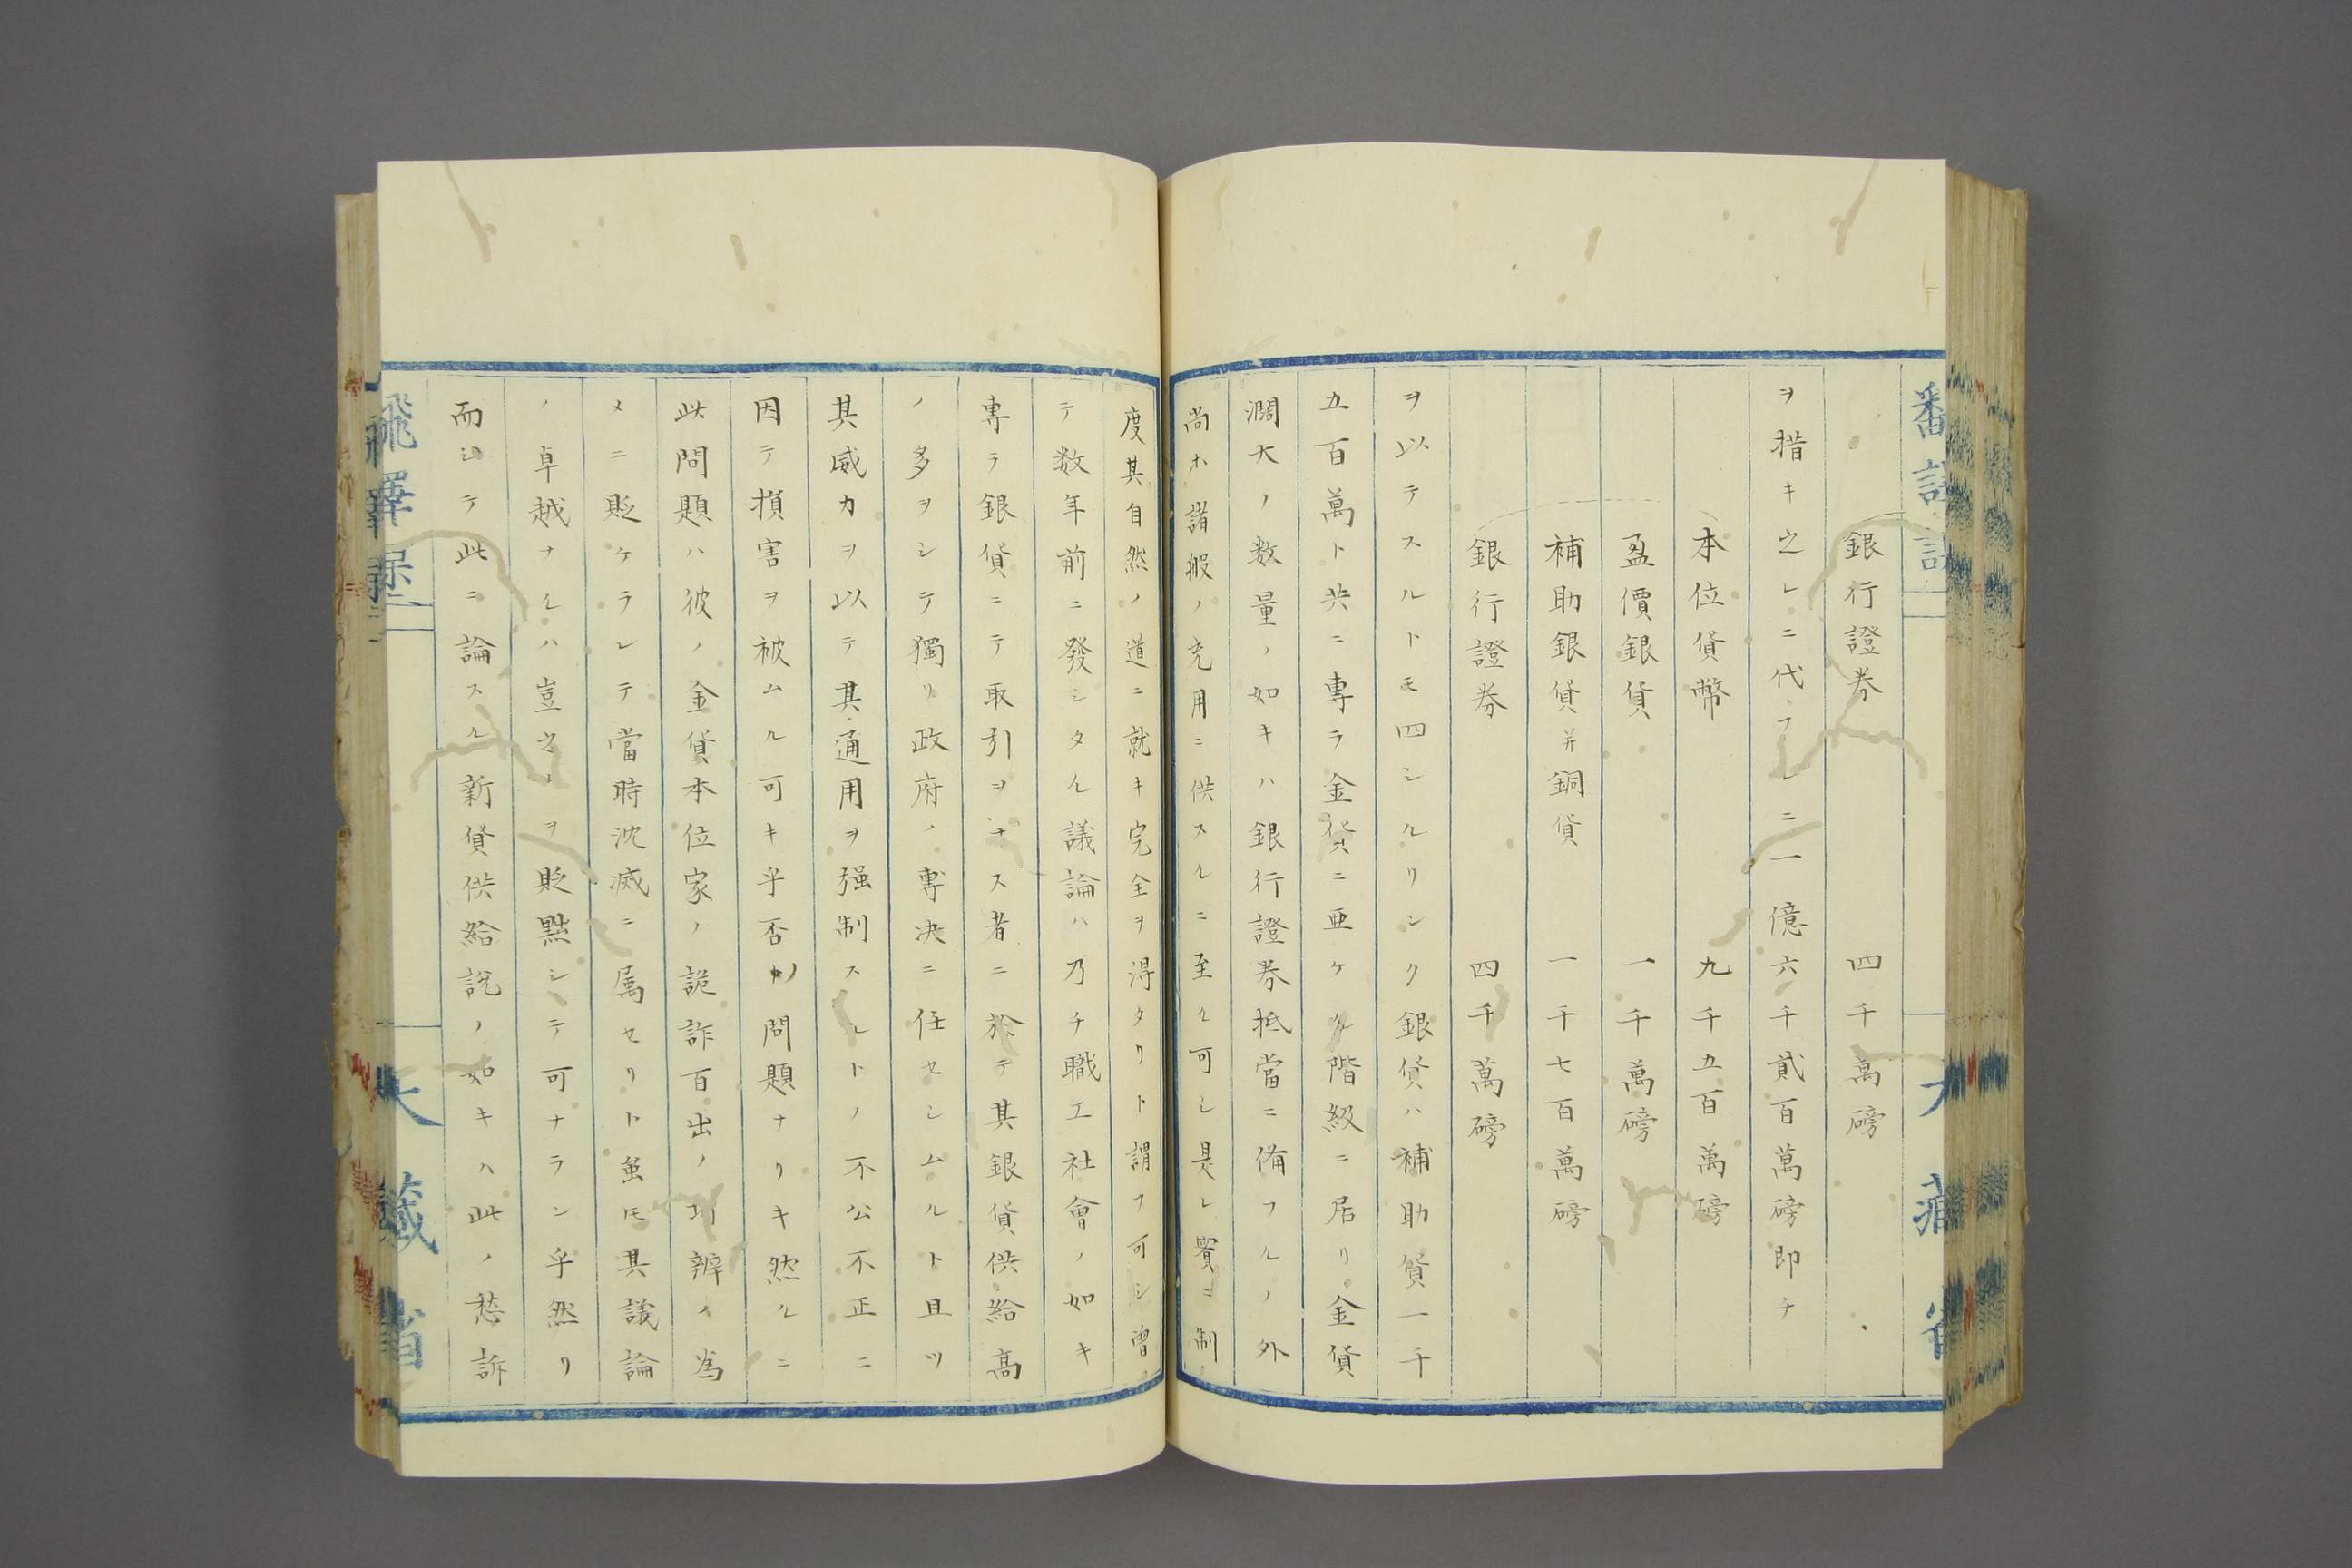 銀行證券　四千萬磅
ヲ措キ之レニ代フレニ一億六千貳百萬磅即チ
本位貨幣　九千五百萬磅
盈價銀貨　一千萬磅
補助銀貨并銅貨　一千七百萬磅
銀行證券　四千萬磅
ヲ以テスルトモ四シルリンク銀貨ハ補助貨一千
五百萬ト共ニ專ラ金貨ニ亜ケル階級ニ居リ金貨
濶大ノ数量ノ如キハ銀行證券抵當ニ備フルノ外
尚ホ諸般ノ充用ニ供スルニ至ル可シ是レ實ニ制
度其自然ノ道ニ就キ完全ヲ得タリト謂フ可シ曽
テ数年前ニ發シタル議論ハ乃チ職工社會ノ如キ
専ラ銀貨ニテ取引ヲナス者ニ於テ其銀貨供給高
ノ多ヲシテ獨リ政府ノ專决ニ任セシムルト且ツ
其威力ヲ以テ其通用ヲ强制スルトノ不公不正ニ
因テ損害ヲ被ムル可キ乎否ノ問題ナリキ然ルニ
此問題ハ彼ノ金貨本位家ノ詭詐百出ノ巧辨ノ為
メニ貶ケラレテ當時沈滅ニ属セリト虽𪜈其議論
ノ卓越ナルハ豈之レヲ貶黜シテ可ナラン乎然リ
而シテ此ニ論スル新貨供給説ノ如キハ此ノ愁訴
大藏省